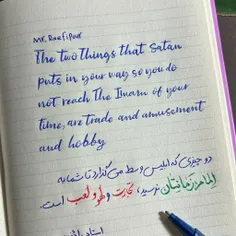 Mr. Raefipour
The two things that Satan
puts in your way so you do
not reach The Imam of your
time, are trade and amusement
and hobby
دو چیزی که ابلیس وسط می گذارد تا شما به
امام زمانتان نرسید، تجارت و لهو و لعب است
استاد